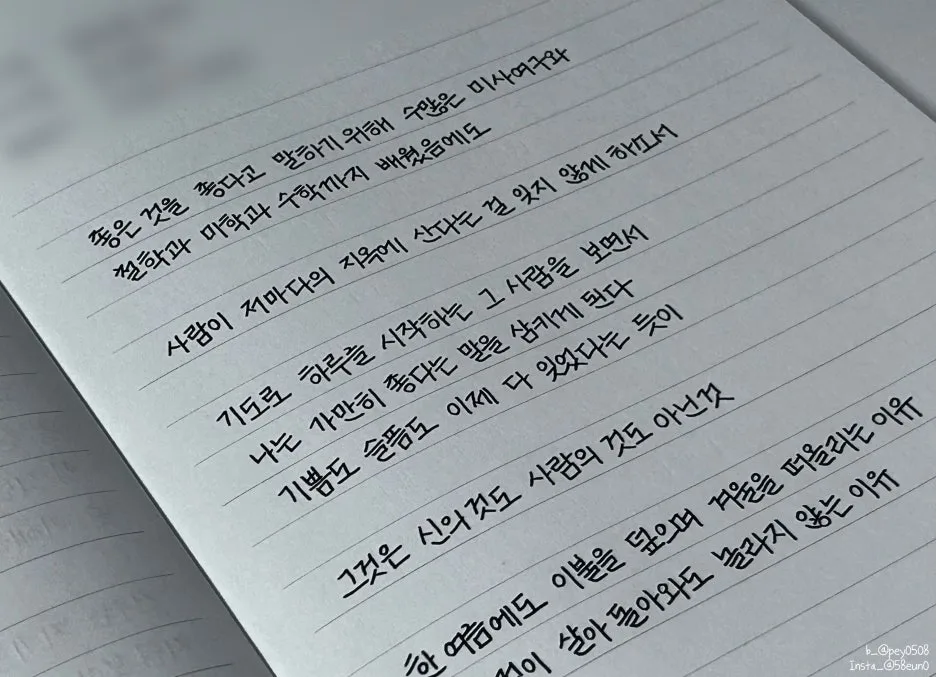 좋은 것을 좋다고 말하기 위해 수많은 미사여구와
철학과 미학과 수학까지 배웠음에도
사람이 저마다의 지옥에 산다는 걸 잊지 않게 하소서
기도로 하루를 시작하는 그 사람을 보면서
나는 가만히 좋다는 말을 삼키게 된다
기쁨도 슬픔도 이제 다 잊었다는 듯이
그것은 신의 것도 사람의 것도 아닌 것
한 여름에도 이불을 덮으며 겨울을 떠올리는 이유
살아 돌아와도 놀라지 않는 이유
b_@pey0508
Insta_@58eun0